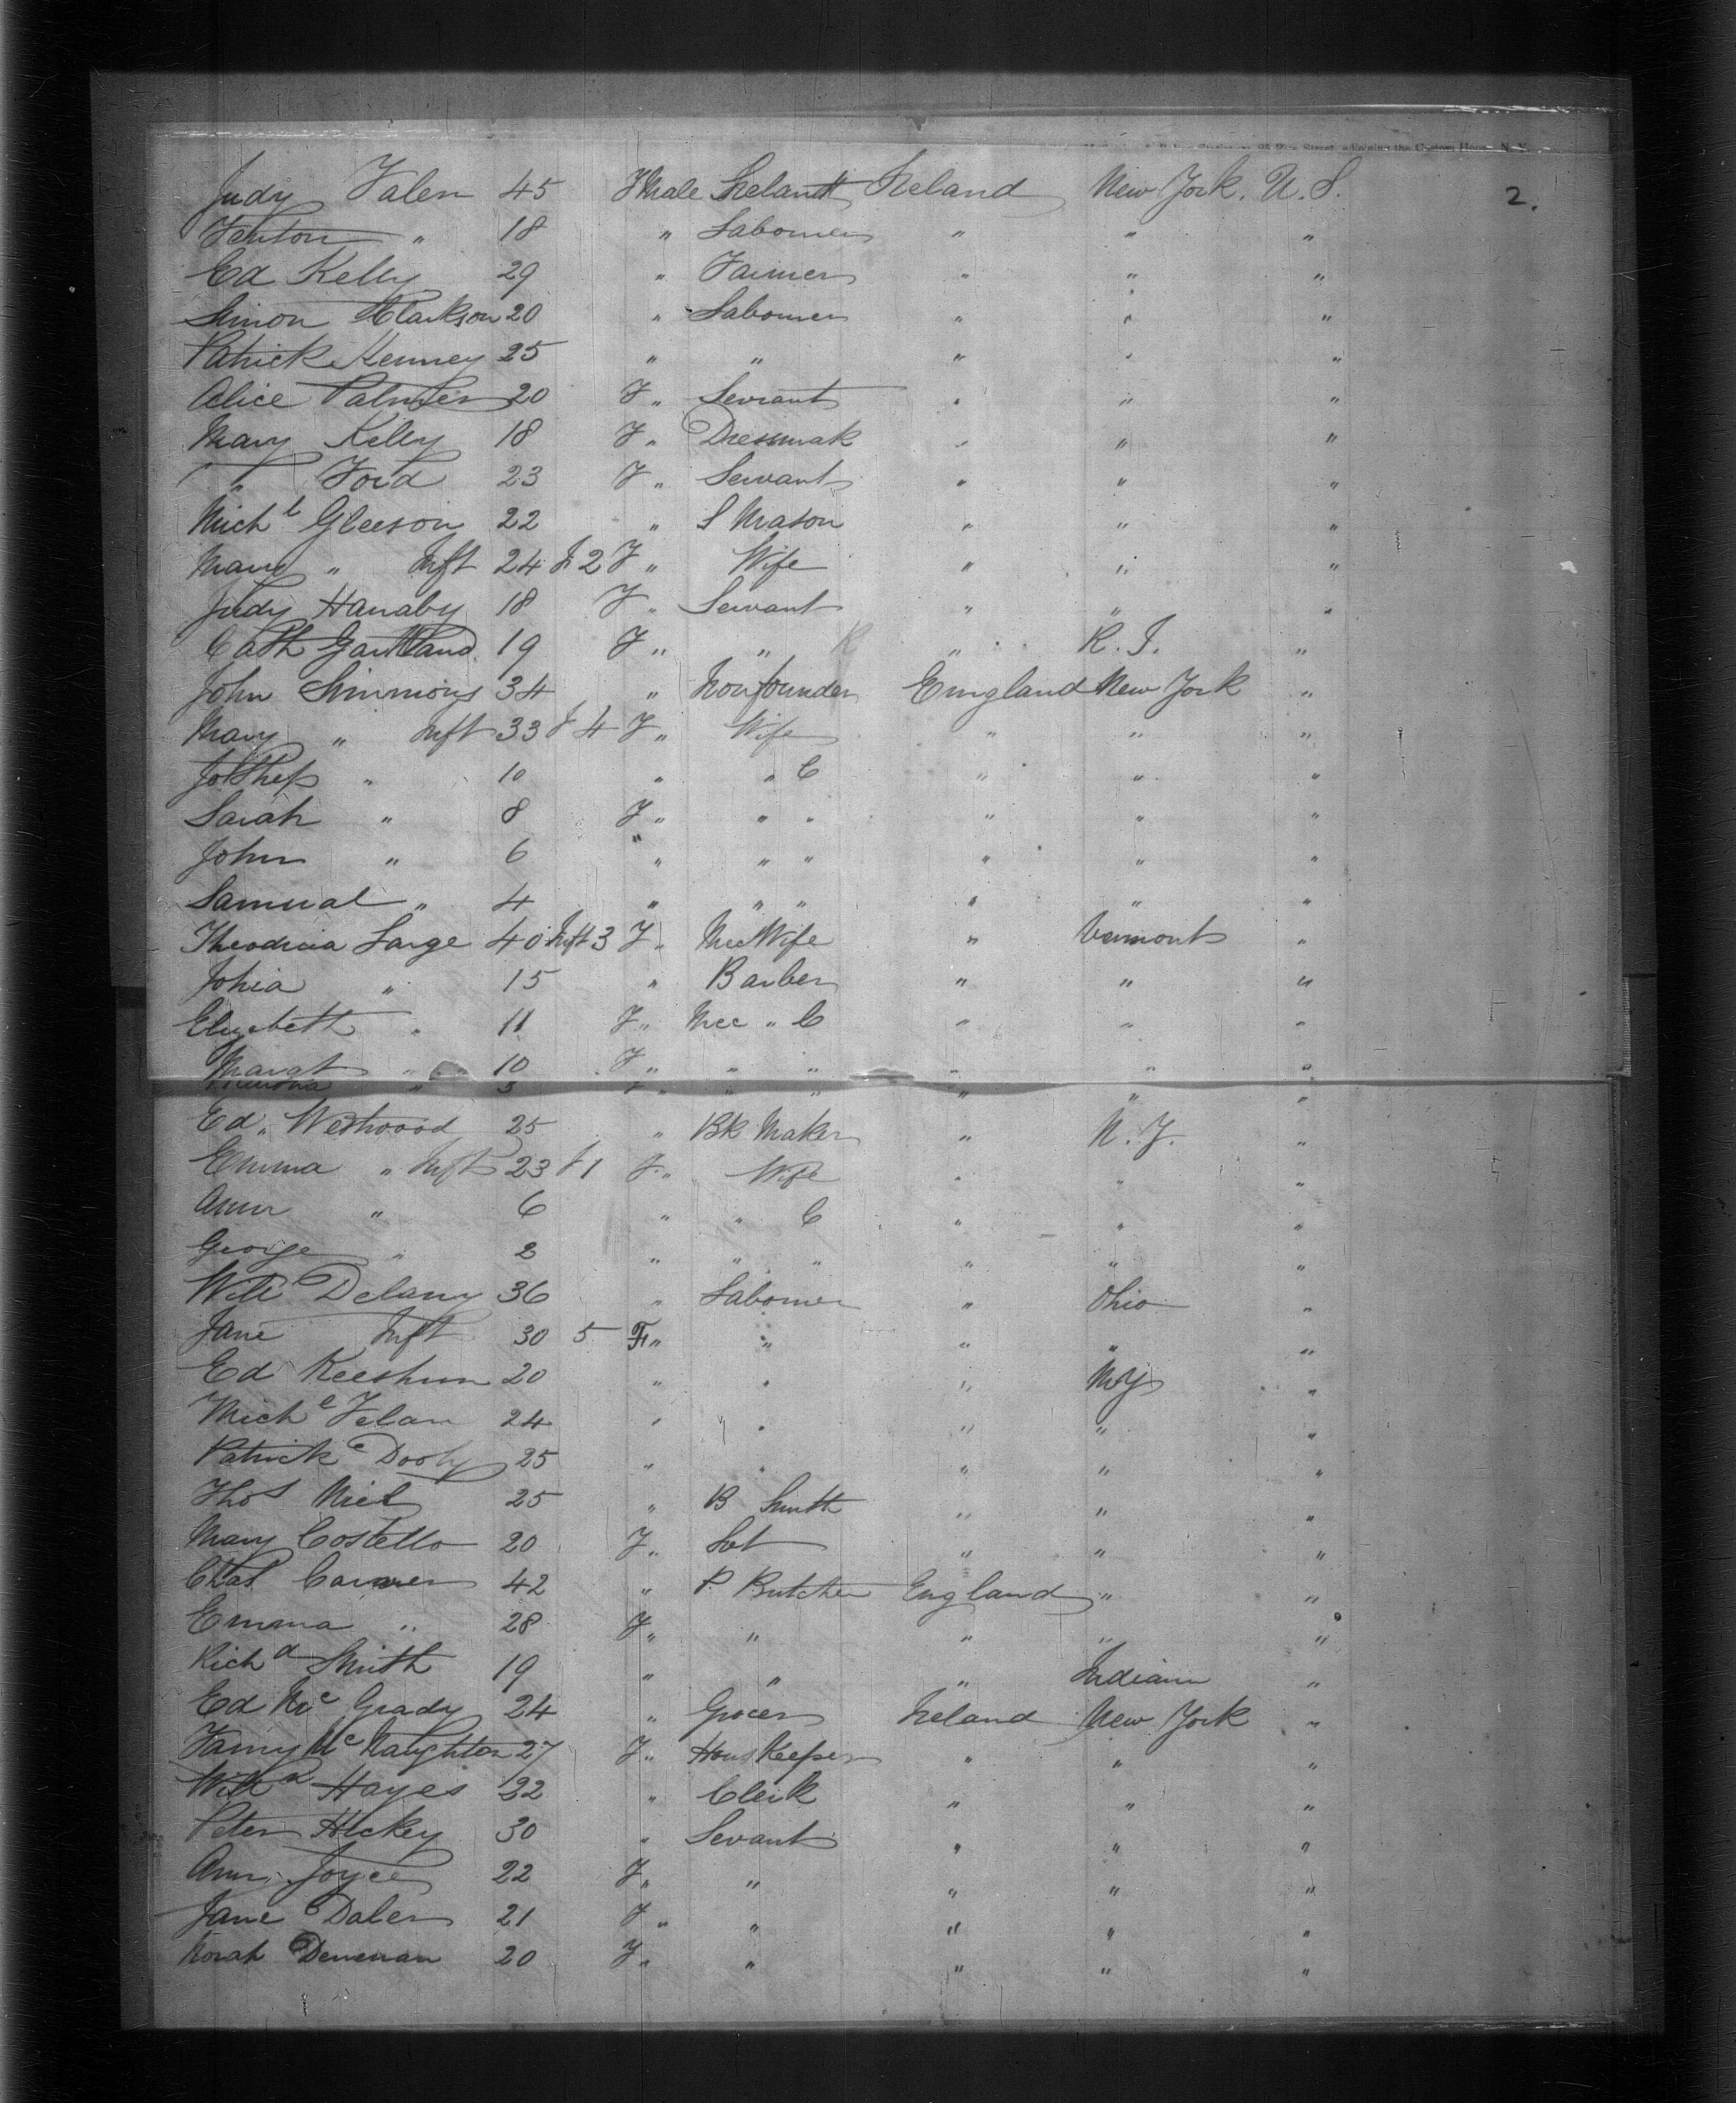 25 Pine Street, adjoining the Custom House, N. Y.
2.
Judy Falen 45 F Male Ireland Ireland New York. U. S.
Fenton " 18 " Labourer " " "
Ed Kelly 29 " Farmer " " "
Simon Clarkson 20 " Labourer " " "
Patrick Kenney 25 " " " " "
Alice Palmer 20 F " Servant " " "
Mary Kelly 18 F " Dressmak " " "
" Ford 23 F " Servant " " "
Mich l Gleeson 22 " S Mason " " "
Mary " Inft 24 & 2 F " Wife " " "
Judy Hanaby 18 F " Servant " " "
Cath Gartland 19 F " " R " R. I. "
John Simmons 34 " Ironfounder England New York "
Mary " Inft 33 & 4 F " Wife " " "
Joseph " 10 " " C " " "
Sarah " 8 F " " " " " "
John " 6 " " " " " "
Samual " 4 " " " " " "
Large 40 Inft 3 F " Mec Wife " Vermont "
" 15 " Barber " " "
Elizabeth " 11 F " Mec " C " " "
Margt " 10 F " " " " " "
" " " " " "
Ed. Westwood 25 " Bk Maker " N. J. "
Emma " Inft 23 & 1 F " Wife " " "
Ann " 6 " " C " " "
George " 2 " " " " " "
Will Delany 36 " Labourer " Ohio "
Jane Inft 30 5 F " " " " "
Ed Keeshun 20 " " " NY "
Mich l Felan 24 " " " " "
Patrick Dooly 25 " " " " "
Thos Niel 25 " B Smith " " "
Mary Costello 20 F " Svt " " "
Chas Carver 42 " P. Butcher England " "
Emma " 28 F " " " " "
Rich d Smith 19 " " " Indiana "
Ed Mc Grady 24 " Grocer Ireland New York "
Fanny Mc Naughton 27 F " Hous Keeper " " "
Will m Hayes 22 " Clerk " " "
Peter Hickey 30 " Sevant " " "
Ann Joyce 22 F " " " " "
Jane Daler 21 F " " " " "
Norah Denenan 20 F " " " " "